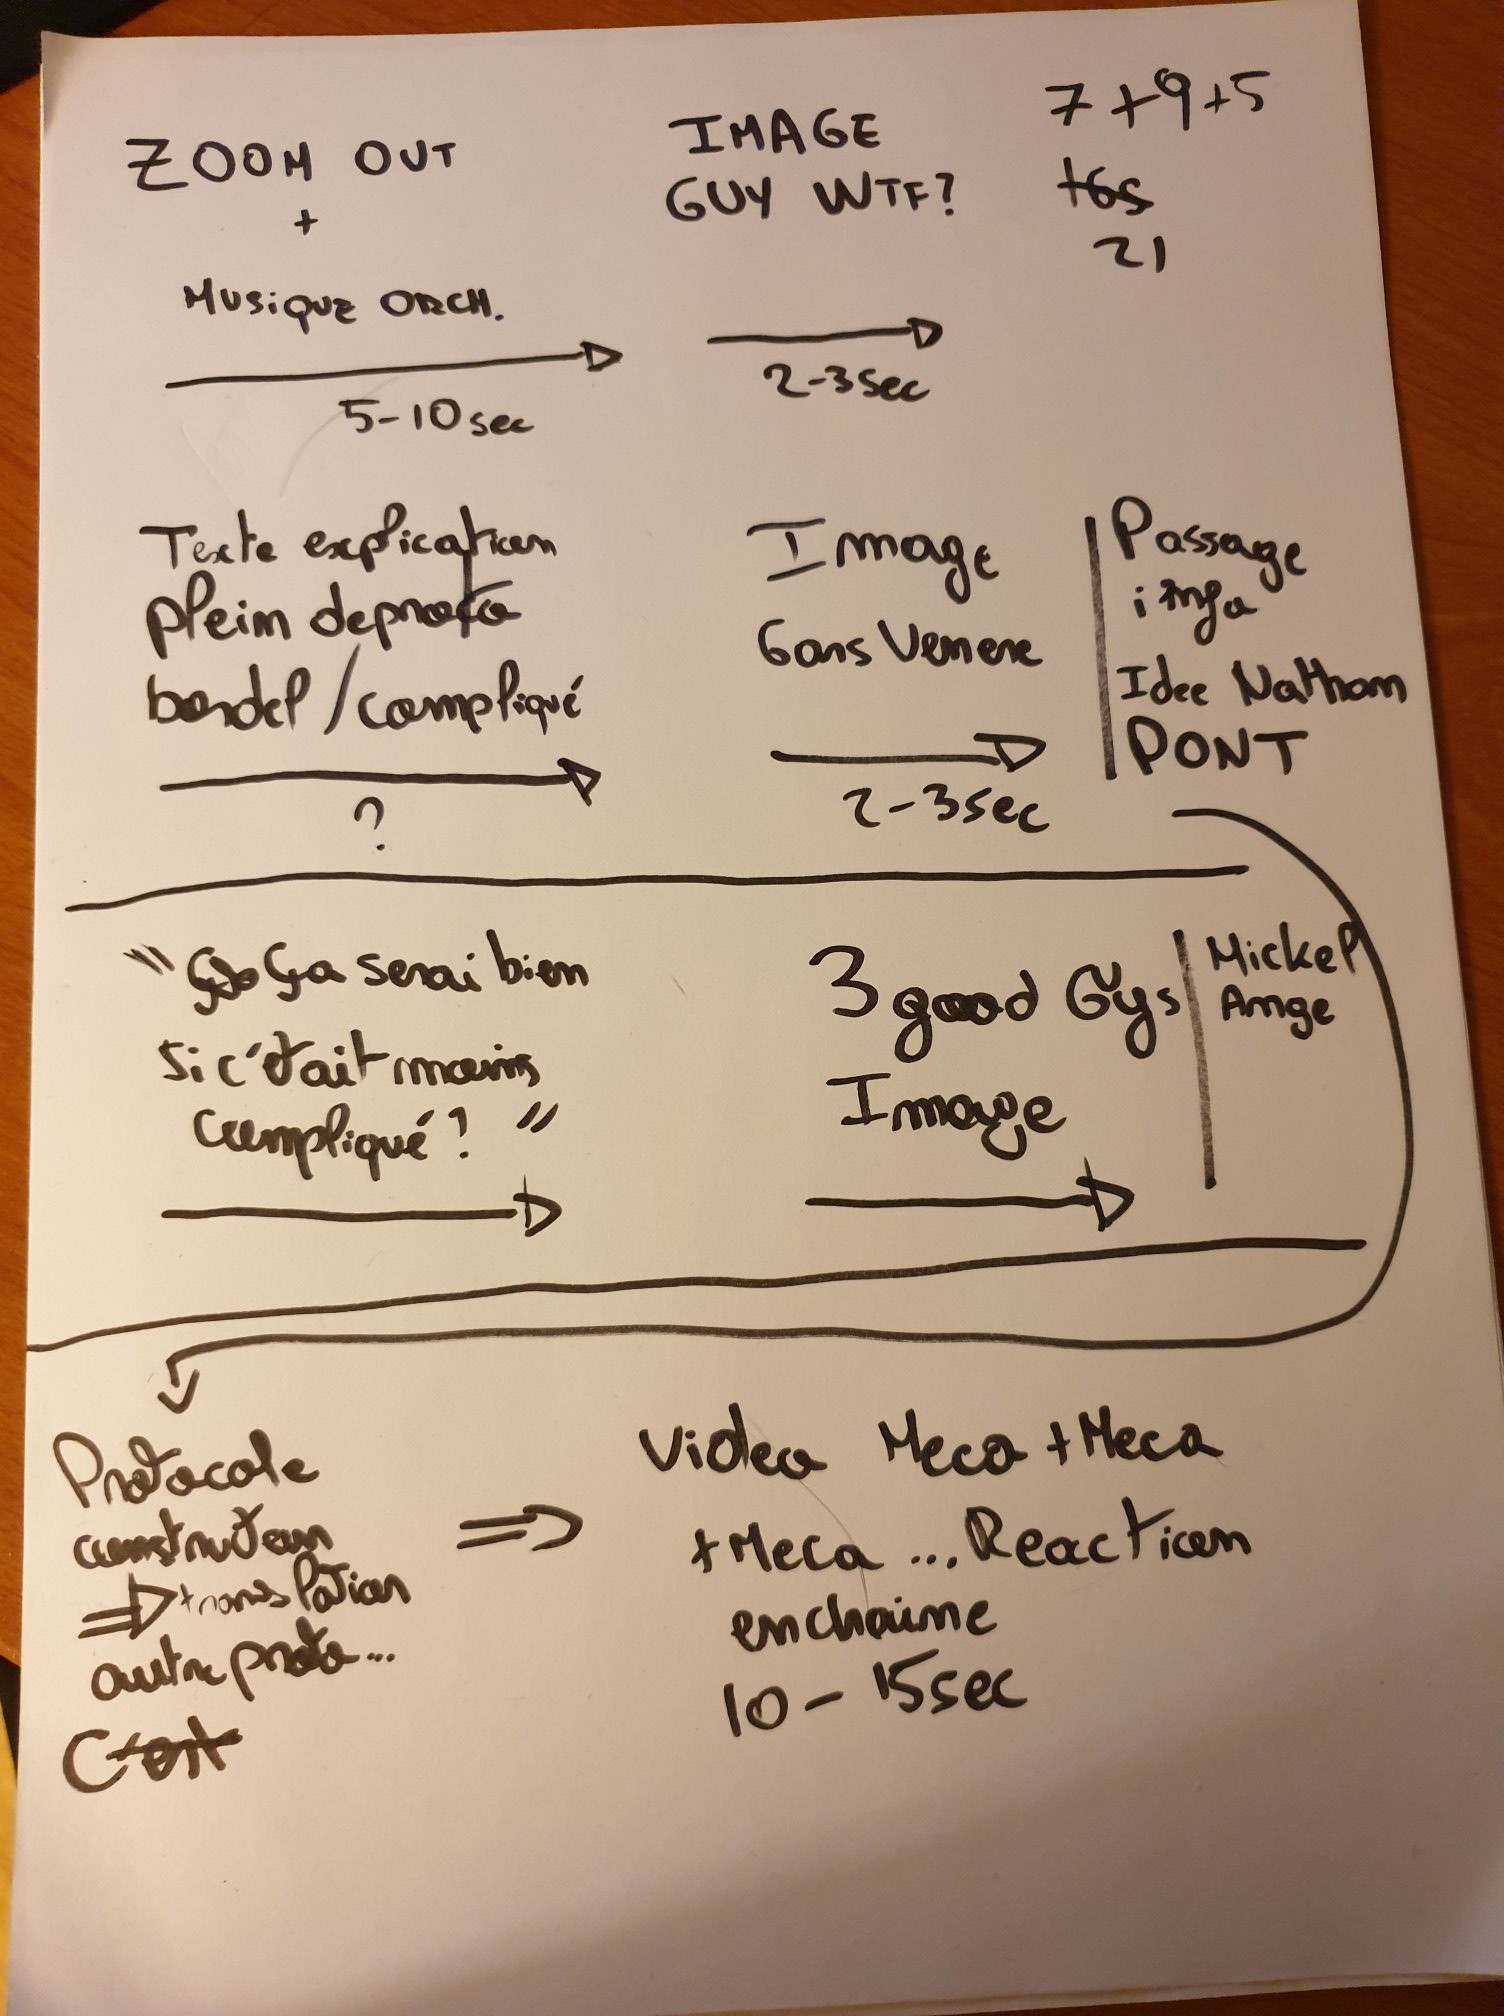 ZOOM OUT
+
Musique ORCH.
5-10 sec
IMAGE
GUY WTF?
2-3 sec
7+9+5
21
Texte explication
plein de proto
bordel / compliqué
?
Image
Gars Venere
2-3 sec
Passage
info
Idee Nathan
PONT
" Ça serai bien
si c'était moins
compliqué ? "
3 good Guys
Image
Mickel
Ange
Protocole
constructeur
⇒ translation
autre proto...
⇒
Video Meca + Meca
+ Meca ... Reaction
enchaine
10 - 15 sec
C'est